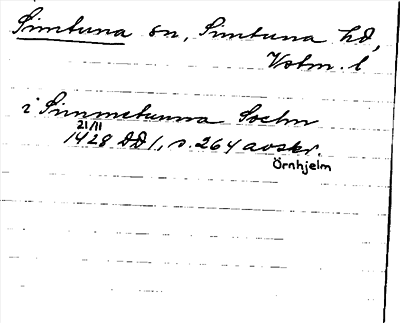 Simtuna sn, Simtuna hd,
Vstm. l
i Simmetunna Sochn
21/11
1428 DD 1, s. 264 avskr.
Örnhjelm